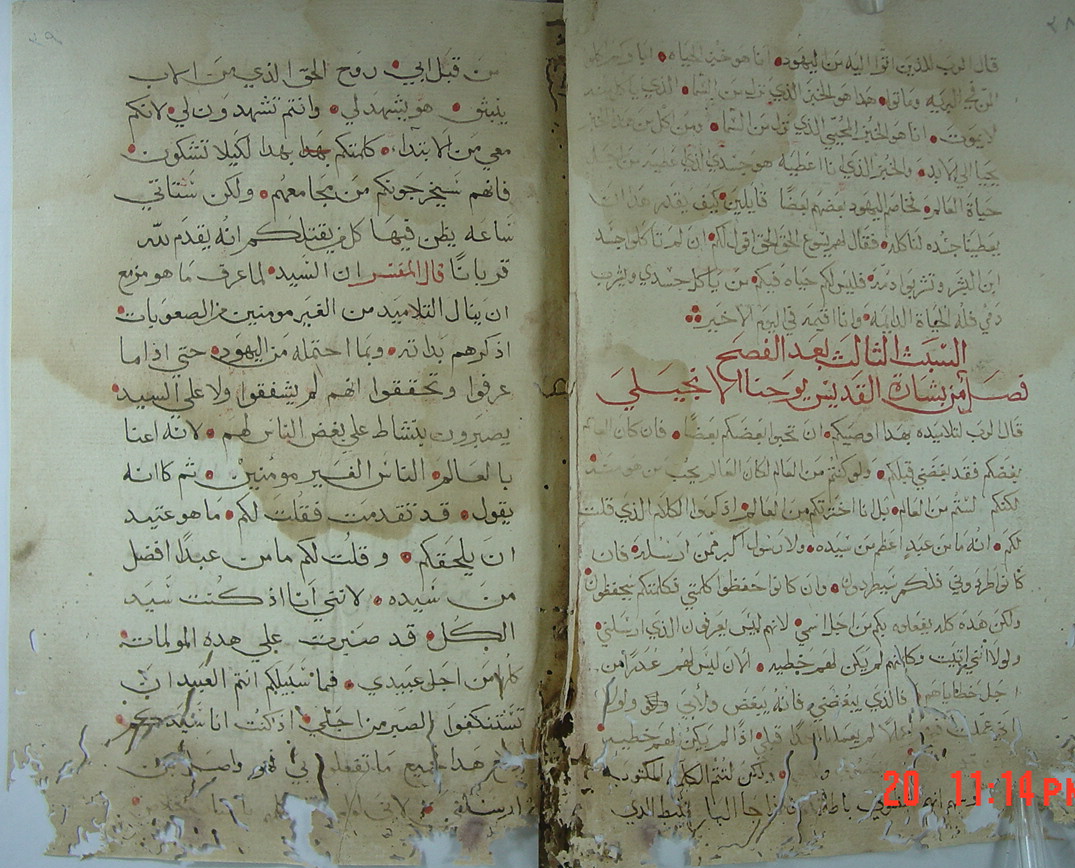 قال الرب للذين اتوا اليه من اليهود انا هو خبز الحياه اباوكم اكلوا
المن في البريه وماتوا هدا هو الخبز الذي نزل من السما الذي ياكل منه
لا يموت انا هو الخبز المحيي الذي نزل من السما ومن اكل من هدا الخبز
يحيا الي الابد والخبز الذي انا اعطيه هو جسدي الذي اعطيه من اجل
حياة العالم تخاصم اليهود بعضهم بعضًا قايلين كيف يقدر هدا ان
يعطينا جسده لناكله فقال لهم يسوع الحق الحق اقول لكم ان لم تاكلوا جسد
ابن البشر وتشربوا دمه فليس لكم حياه فيكم من ياكل جسدي ويشرب
دمي فله الحياة الدايمه وانا اقيمه في اليوم الاخير
السبت الثالث بعد الفصح
فصل من بشارة القديس يوحنا الانجيلي
قال الرب لتلاميده بهدا اوصيكم ان تحبوا بعضكم بعضًا فان كان العالم
يبغضكم فقد بغضني قبلكم ولو كنتم من العالم لكان العالم يحب من هو منه
لكنكم لستم من العالم بل انا اخترتكم من العالم اذكروا الكلام الذي قلت
لكم انه ما من عبد اعظم من سيده ولا رسول اكبر ممن ارسله فان
كانوا طردوني فلكم سيطردون وان كانوا حفظوا كلمتي فكلمتكم سيحفظون
ولكن هده كلها يفعلونه بكم من اجل اسمي لانهم ليس يعرفون الذي ارسلني
ولولا انني اتيت وكلمتهم لم يكن لهم خطيه الان ليس لهم عدرًا من
اجل خطاياهم فالذي يبغضني فانه يبغض ولابي ولولا
اني عملت اعمالا لم يعملها احدًا قبلي اذًا لم يكن لهم خطيه
ولكن لتتم الكلمة المكتوبه
انهم باطلًا فاذا جا البارقليط الذي
من قبل ابي روح الحق الذي من الاب
ينبثق هو يشهد لي وانتم تشهدون لي لانكم
معي من الابتدا كلمتكم بهدا بهدا لكيلا تشكون
فانهم سيخرجونكم من مجامعهم ولكن ستاتي
ساعه يظن فيها كل من يقتلكم انه يقدم لله
قربانًا قال المفسر ان السيد لما عرف ما هو مزمع
ان ينال التلاميد من الغير مومنين من الصعوبات
اذكرهم بداته وبما احتمله من اليهود حتي اذا ما
عرفوا وتحققوا انهم لم يشفقوا ولا علي السيد
يصيرون بنشاط علي بغض الناس لهم لانه اعنا
بالعالم الناس الغير مومنين ثم كانه
يقول قد تقدمت فقلت لكم ما هو عتيد
ان يلحقكم وقلت لكم ما من عبدًا افضل
من سيده لانني انا اذ كنت سيد
الكل قد صبرت علي هده المولمات
كلها من اجل عبيدي فما سبيلكم انتم العبيد ان
تستنكفوا الصبر من اجلي اذ كنت انا سيدكم
هدا جميع ما تفعله بي
ارسله لاني